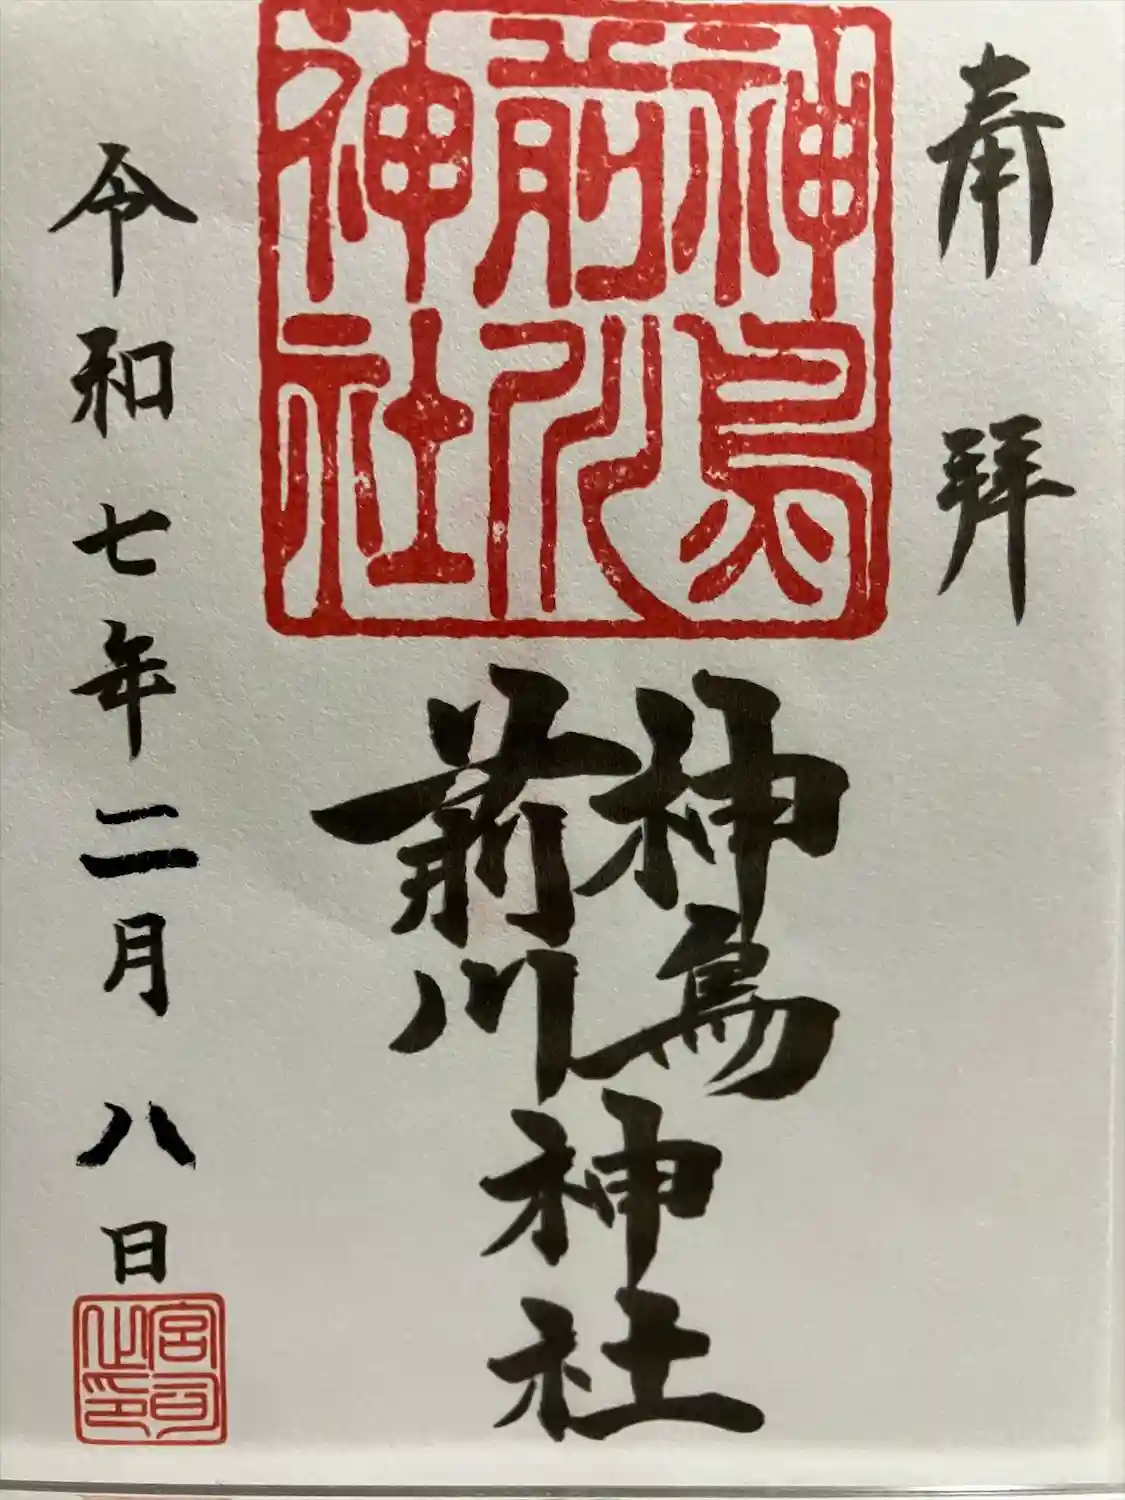 奉拝
神鳥
前川
神社
神鳥
前川
神社
令和七年二月八日
宮司
之印